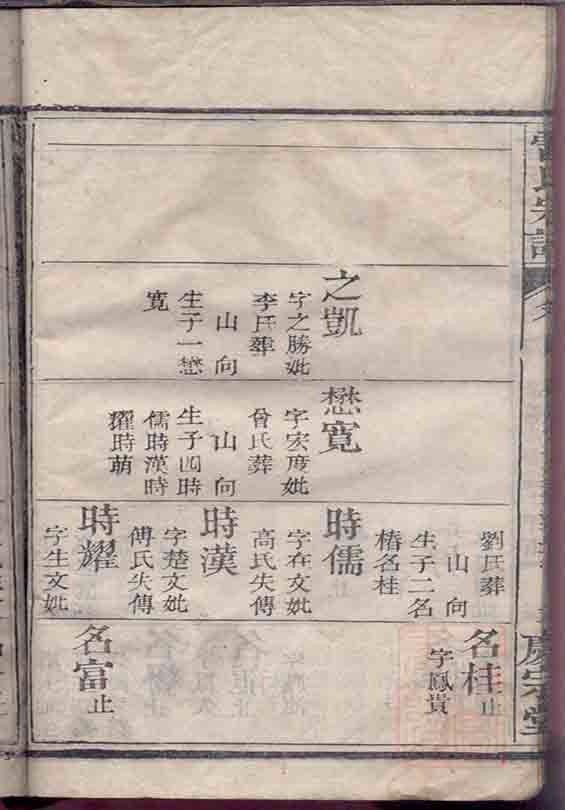 之凱
字之勝妣
李氏葬
山向
生子一懋
寬
懋寬
字宏度妣
曾氏葬
山向
生子四時
儒時漢時
耀時萌
劉氏葬
山向
生子二名
椿名桂
時儒
字在文妣
高氏失傳
時漢
字楚文妣
傅氏失傳
時耀
字生文妣
名桂止
字鳳貴
名富止
氏宗譜
慶宗堂